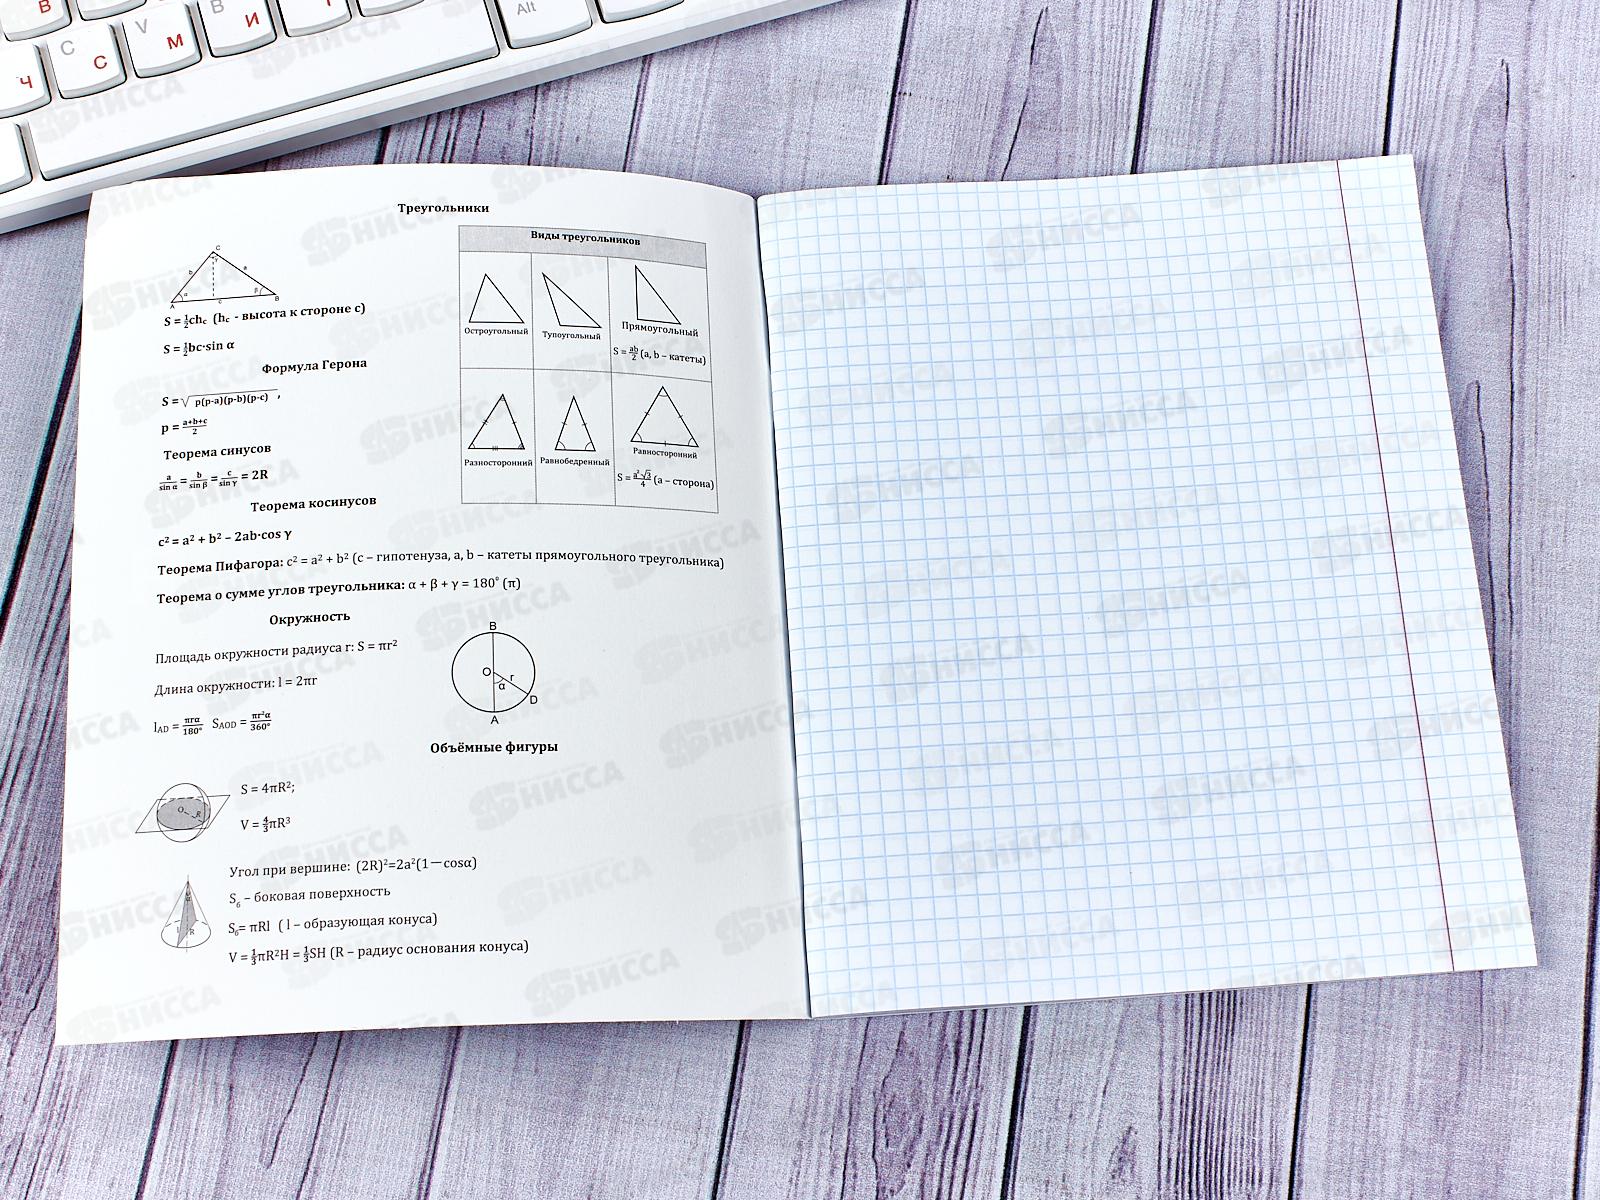 В
Ч
С
С
V
М
В
И
Alt
Треугольники
C
γ
b
a
α
β
A
c
B
S = ½ch_c (h_c - высота к стороне c)
S = ½bc·sin α
Формула Герона
S = √p(p-a)(p-b)(p-c) ,
p = a+b+c/2
Теорема синусов
a/sin α = b/sin β = c/sin γ = 2R
Теорема косинусов
c² = a² + b² – 2ab·cos γ
Виды треугольников
Остроугольный
Тупоугольный
Прямоугольный
S = ab/2 (a, b – катеты)
Разносторонний
Равнобедренный
Равносторонний
S = a²√3/4 (a – сторона)
Теорема Пифагора: c² = a² + b² (c – гипотенуза, a, b – катеты прямоугольного треугольника)
Теорема о сумме углов треугольника: α + β + γ = 180° (π)
Окружность
Площадь окружности радиуса r: S = πr²
Длина окружности: l = 2πr
l_AD = πrα/180° S_AOD = πr²α/360°
B
O
r
α
D
A
Объёмные фигуры
O
R
S = 4πR²;
V = 4/3πR³
Угол при вершине: (2R)²=2a²(1—cosα)
S_б – боковая поверхность
S_б= πRl ( l – образующая конуса)
V = ⅓πR²H = ⅓SH (R – радиус основания конуса)
α
R
НИССА